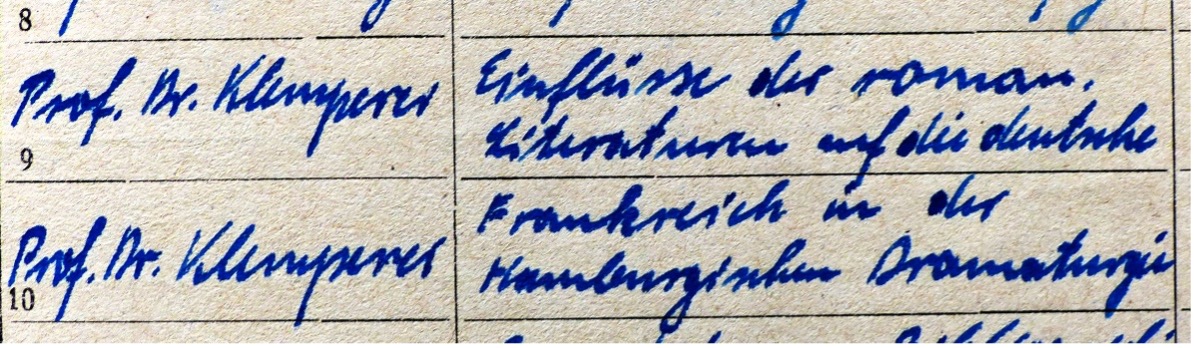 8
Prof. Dr. Klemperer
Einflüsse der roman.
Literaturen auf die deutsche
9
Prof. Dr. Klemperer
Frankreich in der
Hamburgischen Dramaturgie
10